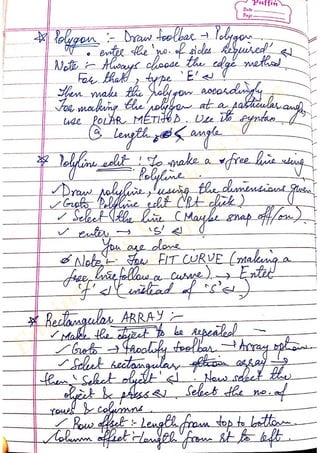 Puffin
Date
Page
* Polygon :- Draw toolbar → Polygon
• enter the 'no. of sides required' ↵
Note :- Always choose the edge method
For that, type 'E' ↵
Then make the polygon accordingly
For making the polygon at a particular angle,
use POLAR METHOD. Use its syntax
@ length < angle
* Polyline edit : To make a free line using
Polyline.
✓ Draw polyline, using the dimensions given
✓ Goto Polyline edit (Rt click)
✓ Select the line (Maybe snap off/on)
✓ enter → 'S' ↵
You are done.
Note :- For FIT CURVE (making a
free line follow a curve) → Enter
'f' ↵ (instead of 's' ↵)
* Rectangular ARRAY :-
✓ Make the object to be repeated
✓ Goto → Modify toolbar → Array option.
✓ Select rectangular array →
then 'Select object' ↵. Now select the
object & press ↵. Select the no. of
rows & columns.
✓ Row offset :- Length from top to bottom.
✓ Column offset :- Length from rt to left.